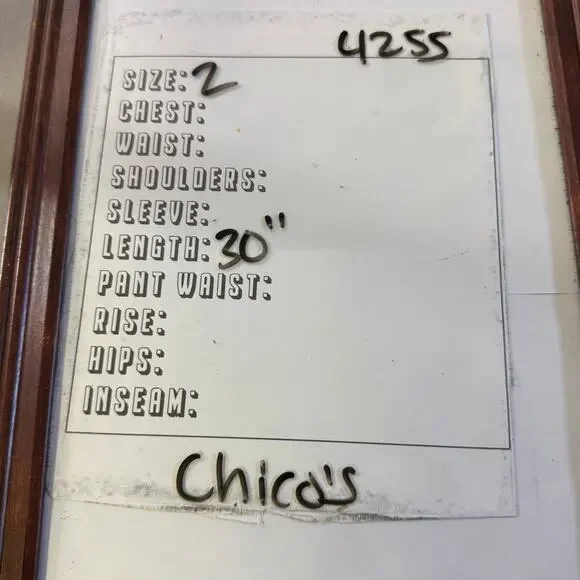 4255
SIZE: 2
CHEST:
WAIST:
SHOULDERS:
SLEEVE:
LENGTH: 30"
PANT WAIST:
RISE:
HIPS:
INSEAM:
Chico's